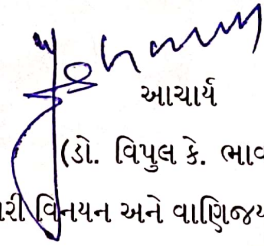 આચાર્ય
(ડો. વિપુલ કે. ભાવ
રી વિનયન અને વાણિજ્ય